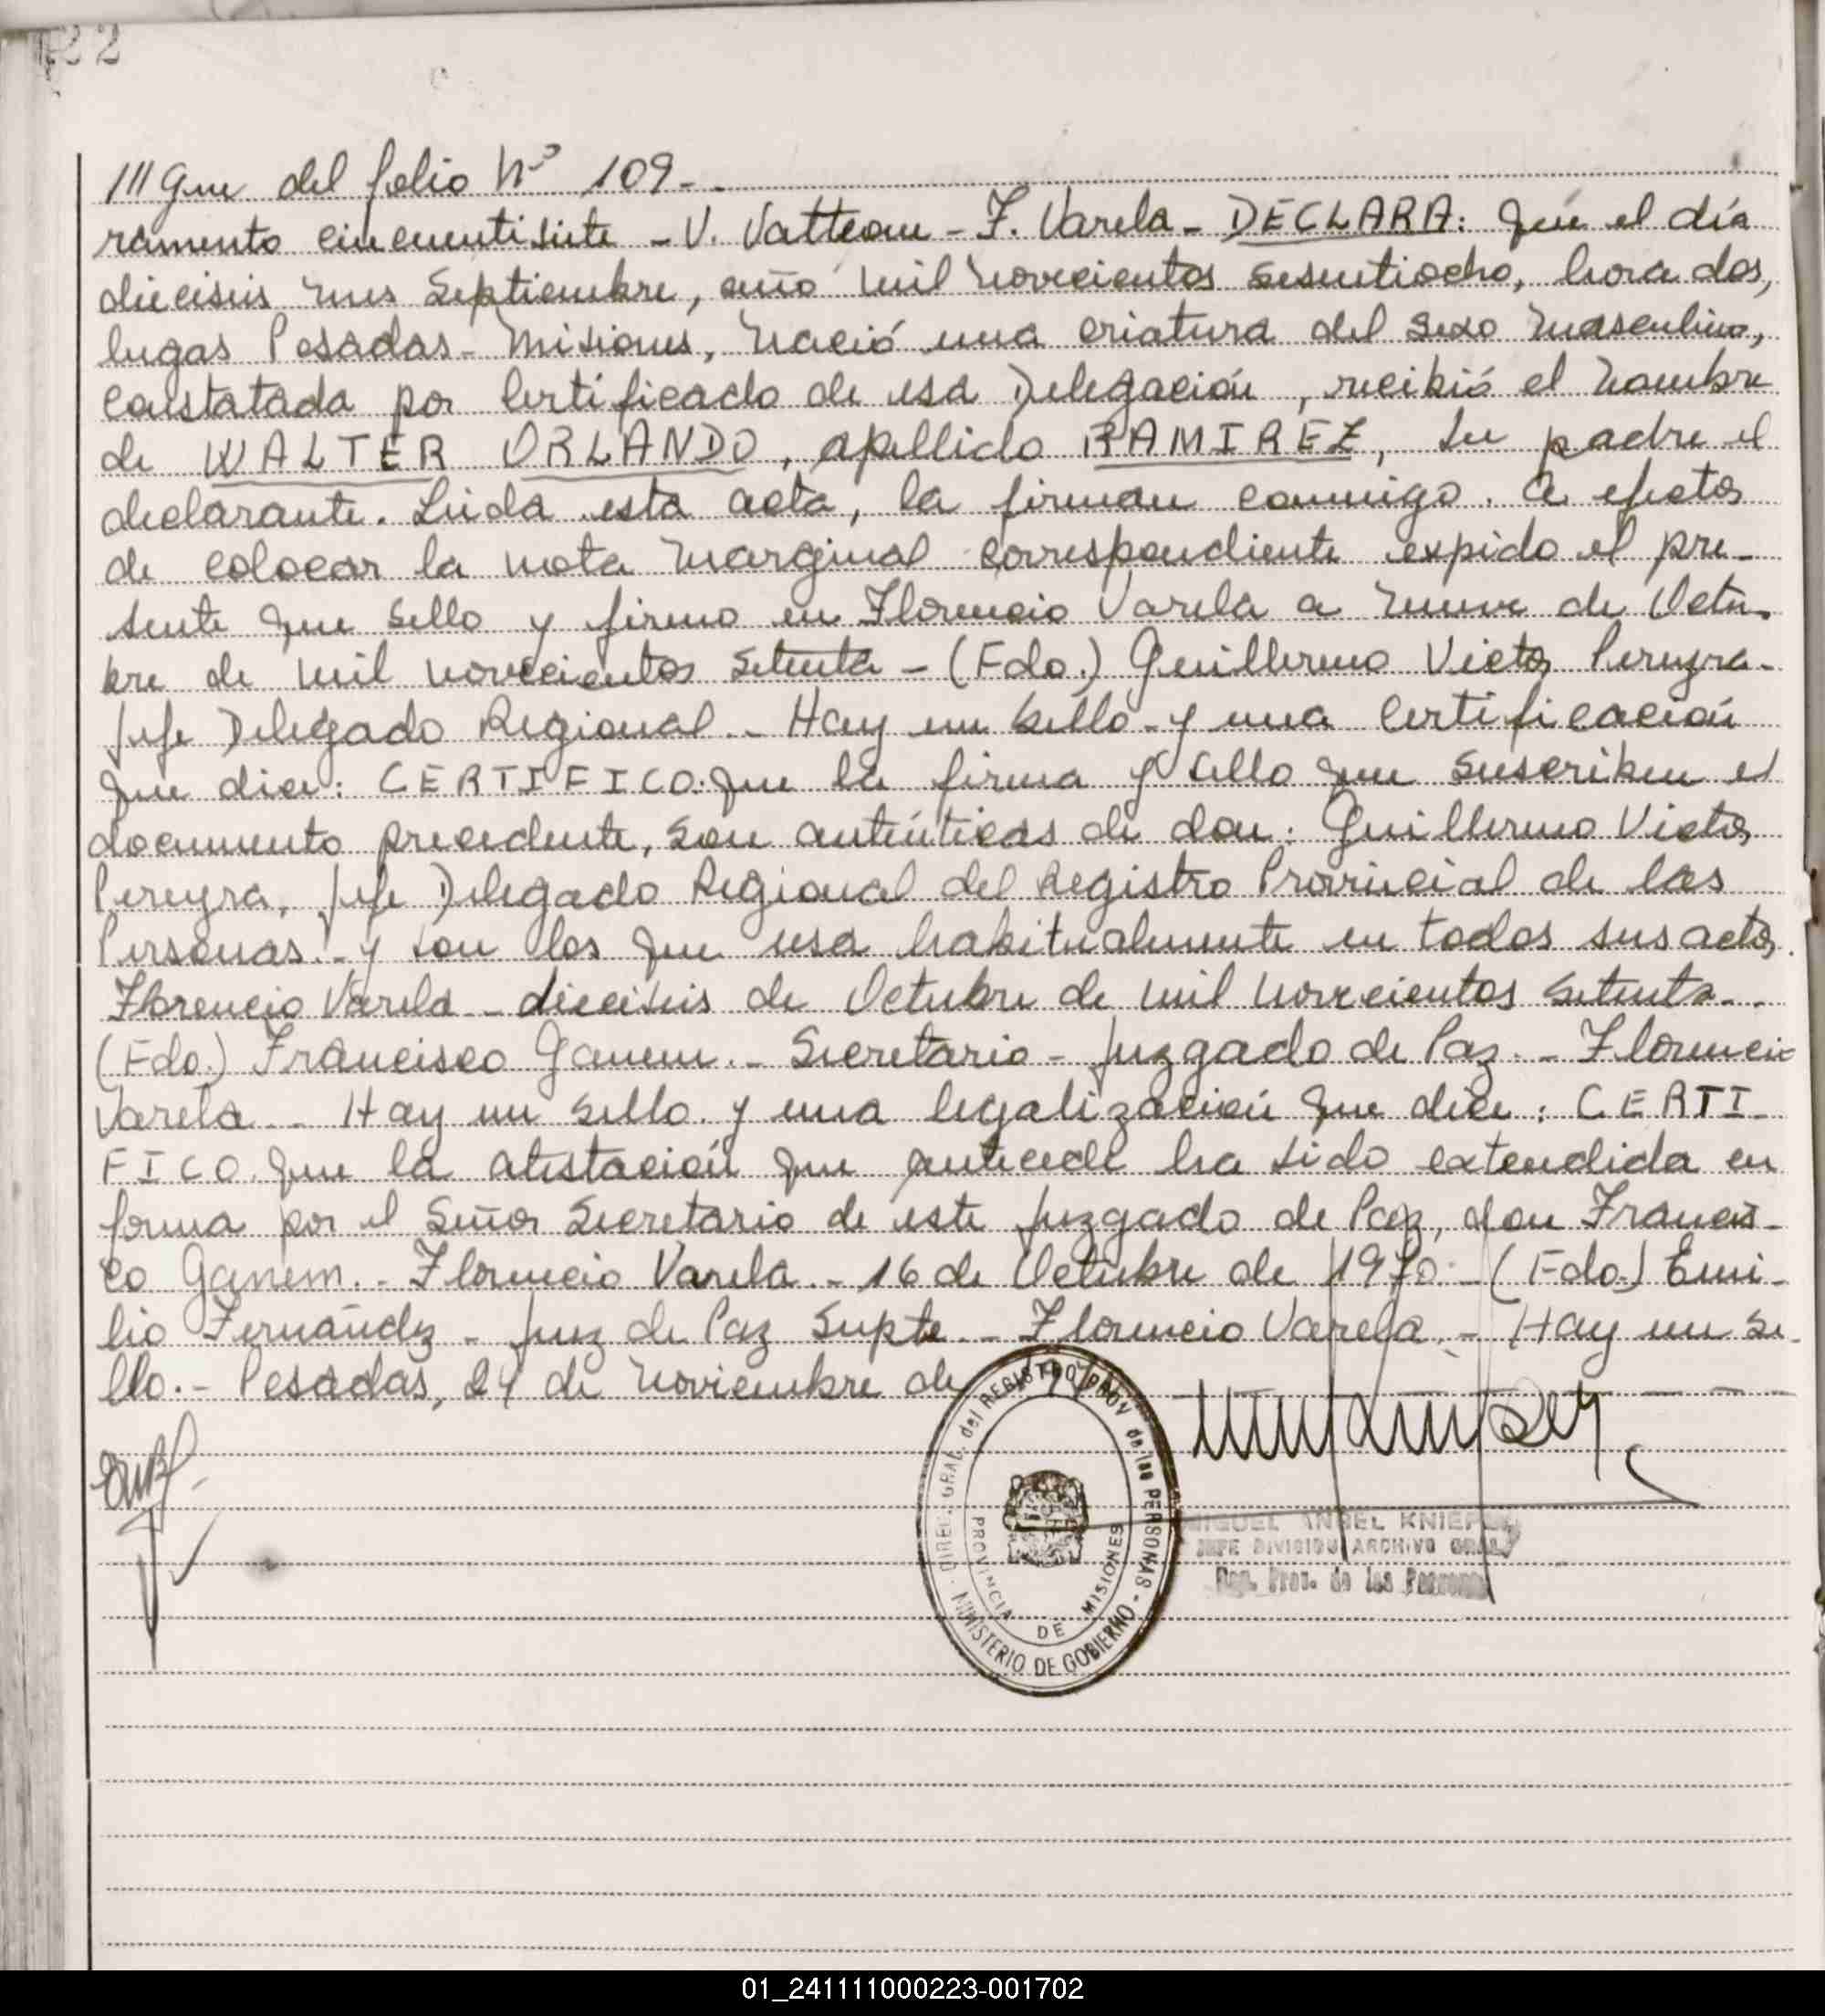 22
///gue del folio Nº 109.-
ramento cincuentisiete - V. Vatteone - F. Varela - DECLARA: Que el día
dieciseis mes Septiembre, año mil novecientos sesentiocho, hora dos,
lugar Posadas - Misiones, nació una criatura del sexo masculino,
constatada por certificado de esa Delegación, recibió el nombre
de WALTER ORLANDO, apellido RAMIREZ, su padre el
declarante. Leida esta acta, la firman conmigo. A efectos
de colocar la nota marginal correspondiente expido el pre-
sente que sello y firmo en Florencio Varela a nueve de Octu-
bre de mil novecientos setenta - (Fdo.) Guillermo Victor Pereyra -
Jefe Delegado Regional.- Hay un sello - y una certificación
que dice: CERTIFICO: que la firma y sello que suscriben el
documento precedente, son auténticas de don: Guillermo Victor
Pereyra, Jefe Delegado Regional del Registro Provincial de las
Personas.- y son los que usa habitualmente en todos sus actos.
Florencio Varela - dieciseis de Octubre de mil novecientos setenta.-
(Fdo.) Francisco Ganem.- Secretario - Juzgado de Paz.- Florencio
Varela - Hay un sello y una legalización que dice: CERTI-
FICO. que la atestación que antecede ha sido extendida en
forma por el Señor Secretario de este Juzgado de Paz, don Francis-
co Ganem.- Florencio Varela.- 16 de Octubre de 1970.- (Fdo.) Emi-
lio Fernández - Juez de Paz Supte.- Florencio Varela.- Hay un se-
llo.- Posadas, 24 de Noviembre de
DIREC. GRAL. del REGISTRO PROV. de las PERSONAS - MINISTERIO DE GOBIERNO -
PROVINCIA DE MISIONES
MIGUEL ANGEL
JEFE DIVISION ARCHIVO GRAL
Reg. Prov. de las Personas
01_241111000223-001702